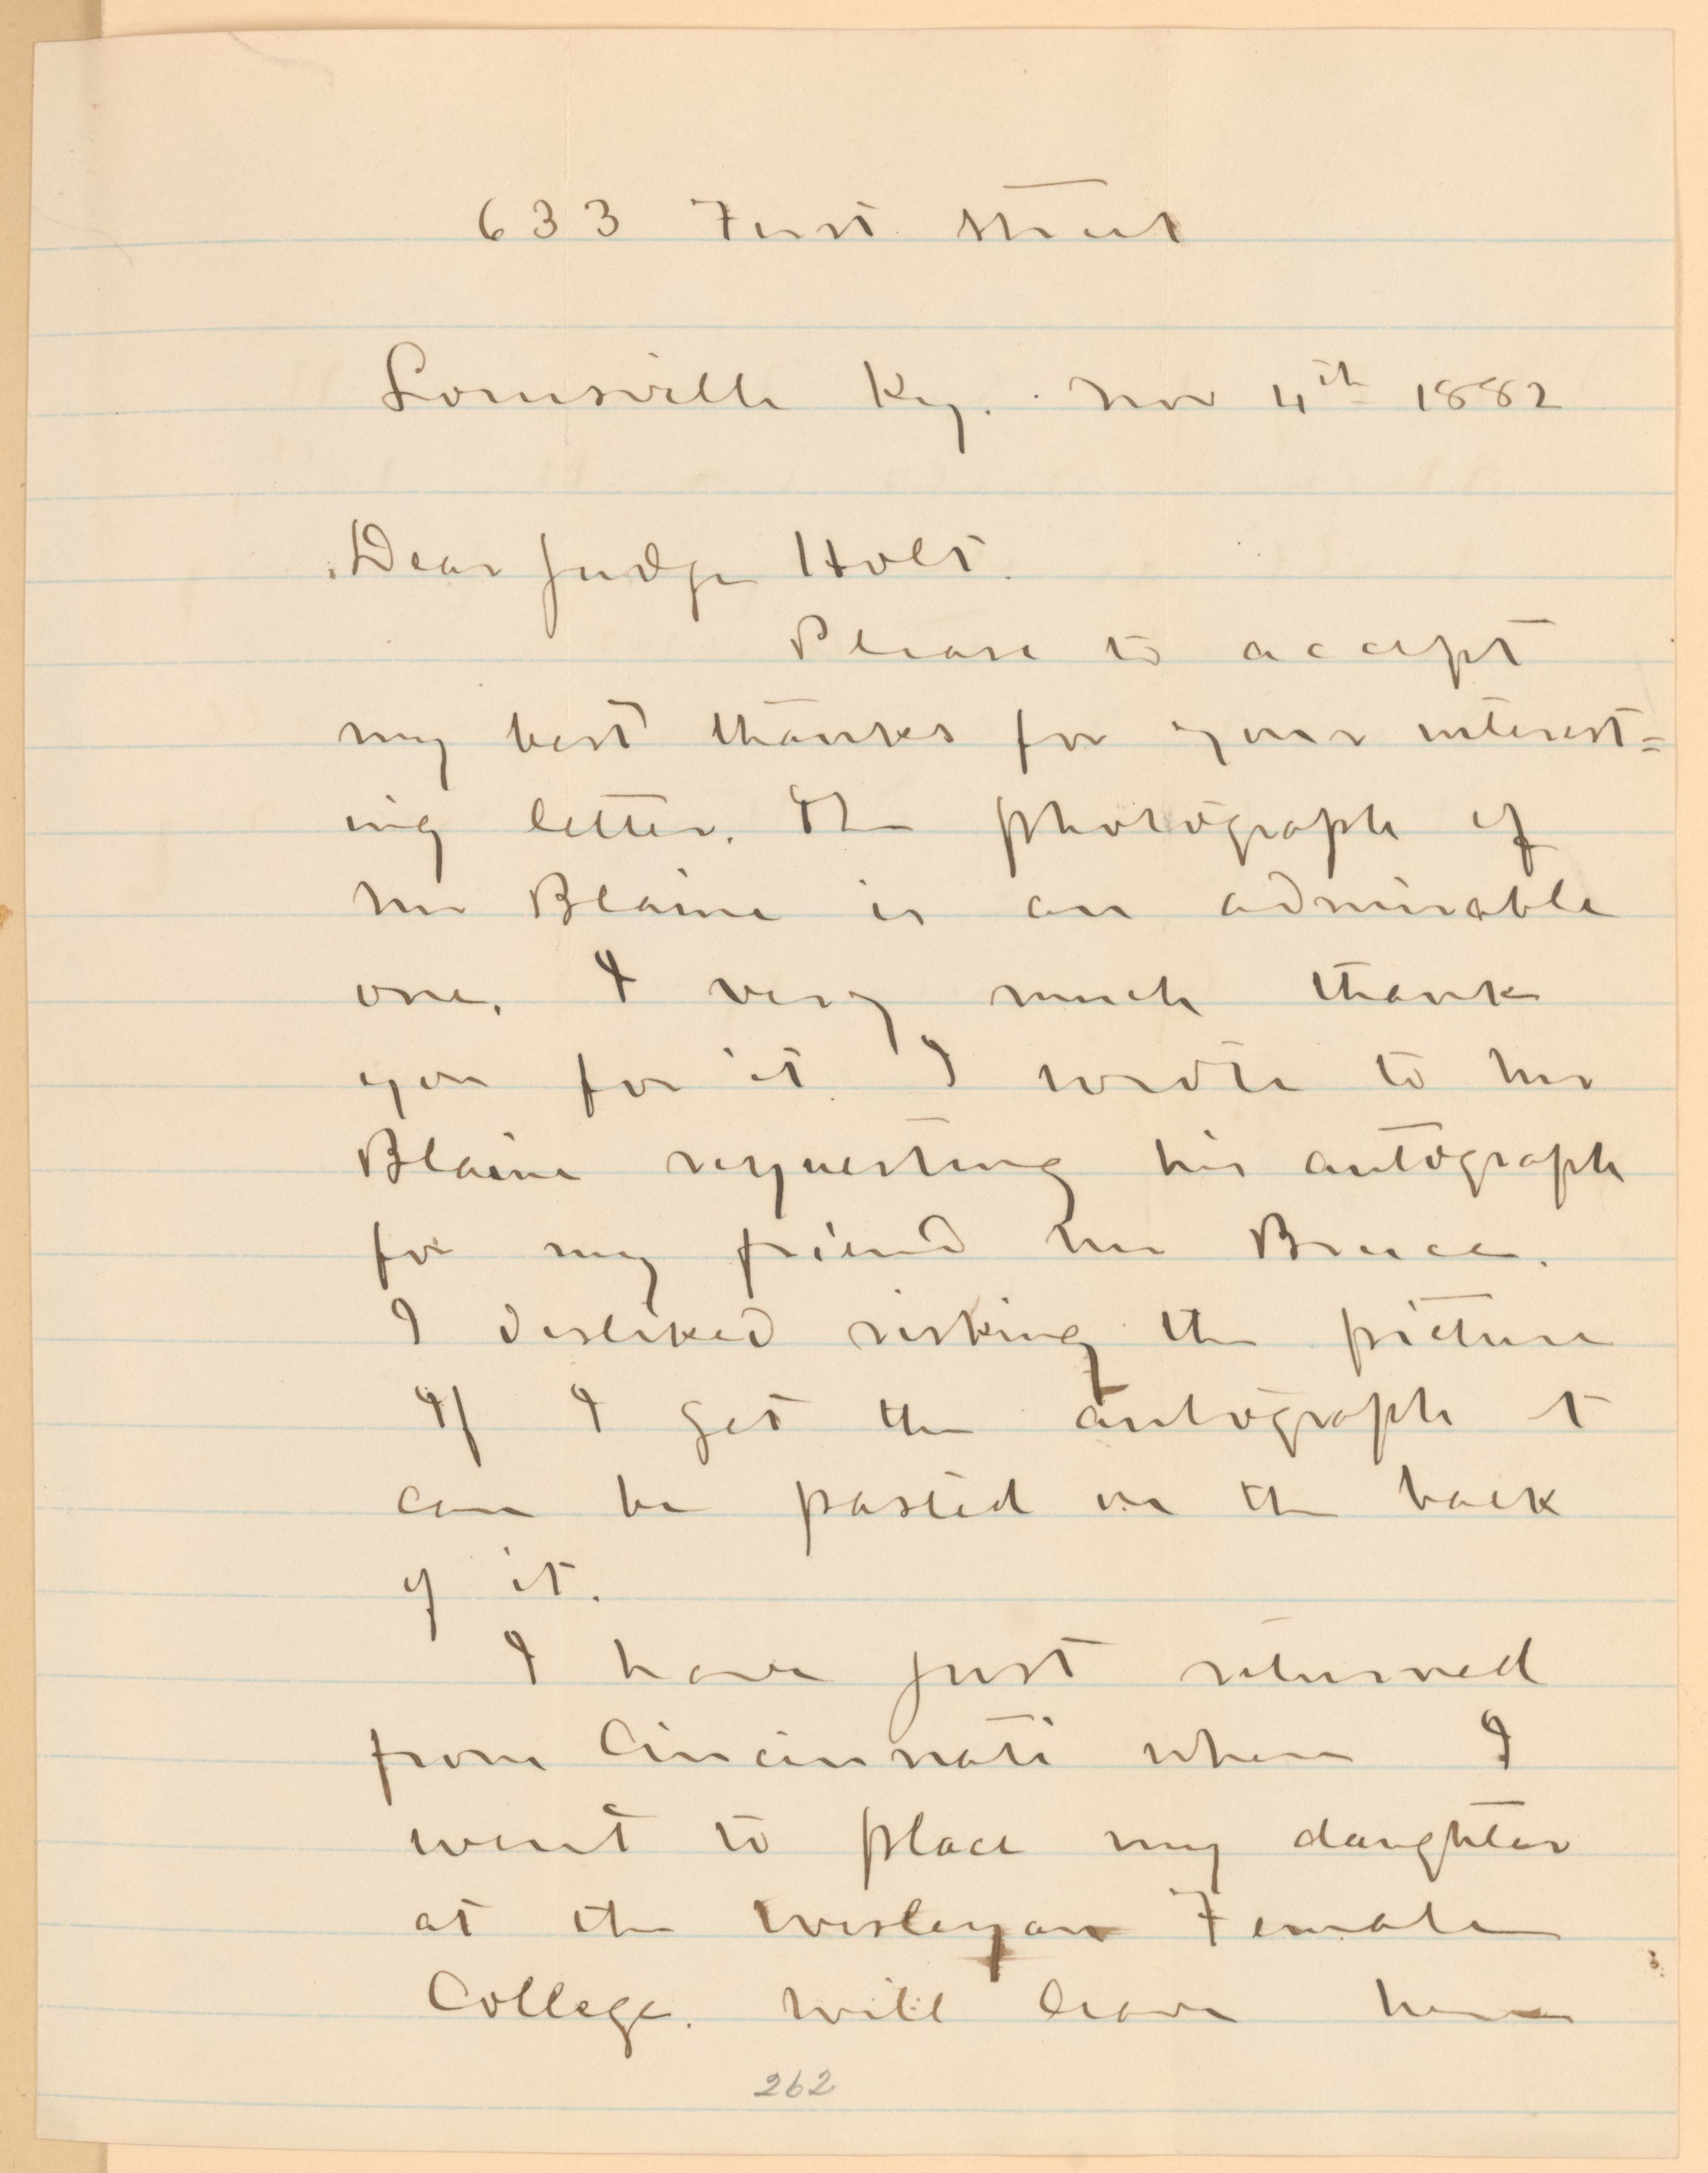 633 First Street
Louisville Ky. Nov 4th 1882
Dear Judge Holt.
Please to accept
my best thanks for your interest=
ing letter. The photograph of
Mr Blaine is an admirable
one. I very much thank
you for it. I wrote to Mr
Blaine requesting his autograph
for my friend Mr Bruce.
I disliked risking the picture
If I get the autograph it
can be pasted on the back
of it.
I have just returned
from Cincinnati where I
went to place my daughter
at the Wesleyan Female
College. Will leave here
262